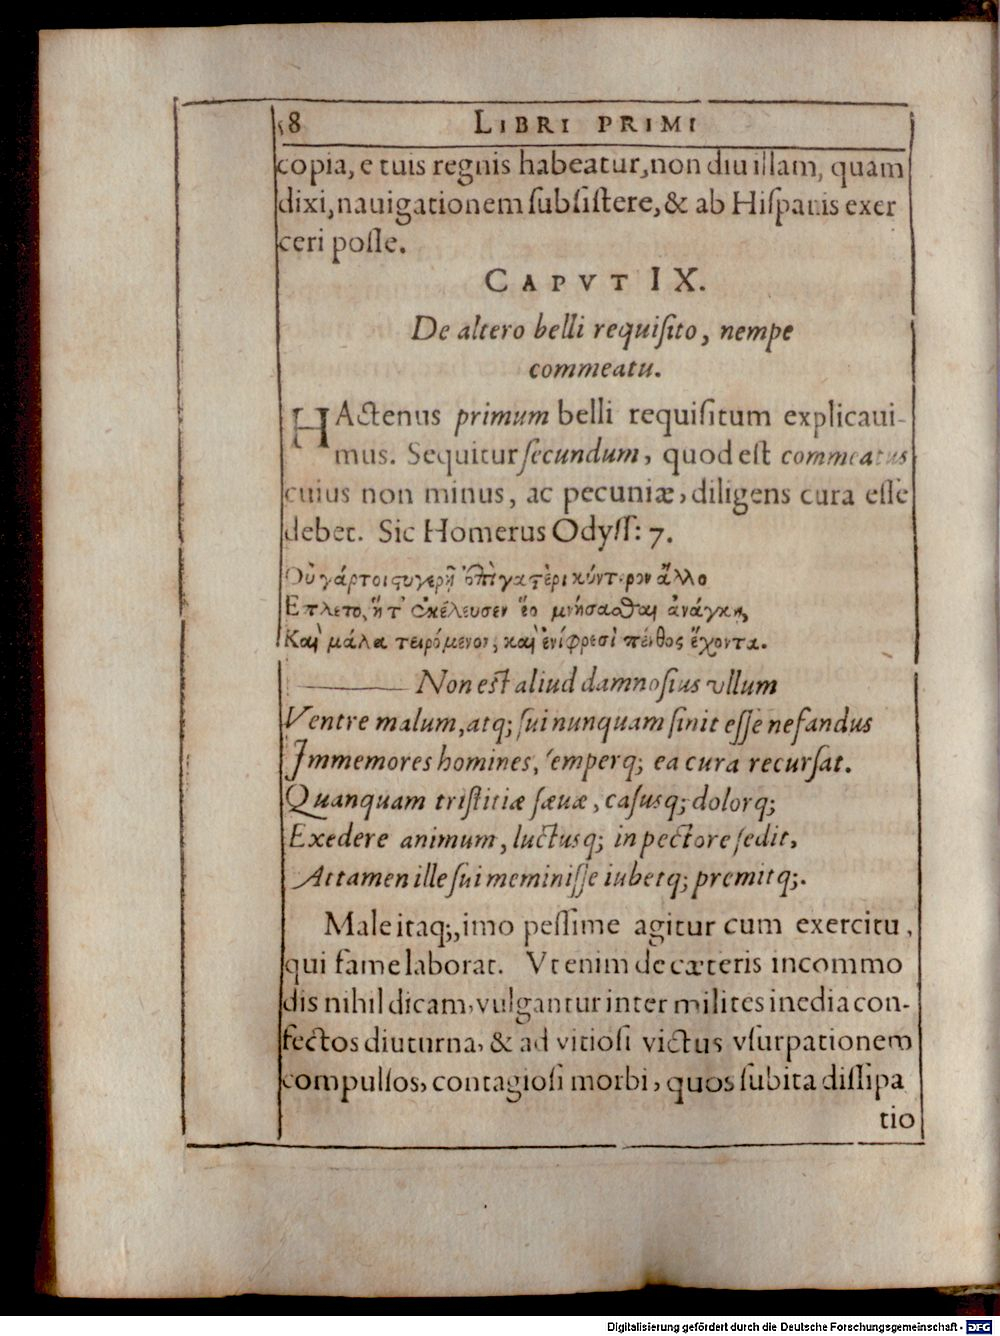 58 LIBRI PRIMI
copia, e tuis regnis habeatur, non diu illam, quam
dixi, nauigationem ſubſiſtere, & ab Hiſpanis exer
ceri poſſe.
CAPVT IX.
De altero belli requiſito, nempe
commeatu.
HActenus primum belli requiſitum explicaui-
mus. Sequitur ſecundum, quod eſt commeatus
cuius non minus, ac pecuniæ, diligens cura eſſe
debet. Sic Homerus Odyſſ: 7.
Οὐ γάρ τοι στυγερῇ ἐπὶ γαστέρι κύντερον ἄλλο
Επλετο, ἥτ' ἐκέλευσεν ἕο μνήσασθαι ἀνάγκῃ,
Καὶ μάλα τειρόμενον, καὶ ἐνὶ φρεσὶ πένθος ἔχοντα.
Non eſt aliud damnoſius vllum
Ventre malum, atq; ſui nunquam ſinit eſſe nefandus
Immemores homines, ſemperq; ea cura recurſat.
Quanquam triſtitiæ ſæuæ, caſusq; dolorq;
Exedere animum, luctusq; in pectore ſedit,
Attamen ille ſui meminiſſe iubetq; premitq;.
Male itaq;, imo peſſime agitur cum exercitu,
qui fame laborat. Vt enim de cæteris incommo
dis nihil dicam, vulgantur inter milites inedia con-
fectos diuturna, & ad vitioſi victus vſurpationem
compulſos, contagioſi morbi, quos ſubita diſſipa
tio
Digitalisierung gefördert durch die Deutsche Forschungsgemeinschaft - DFG